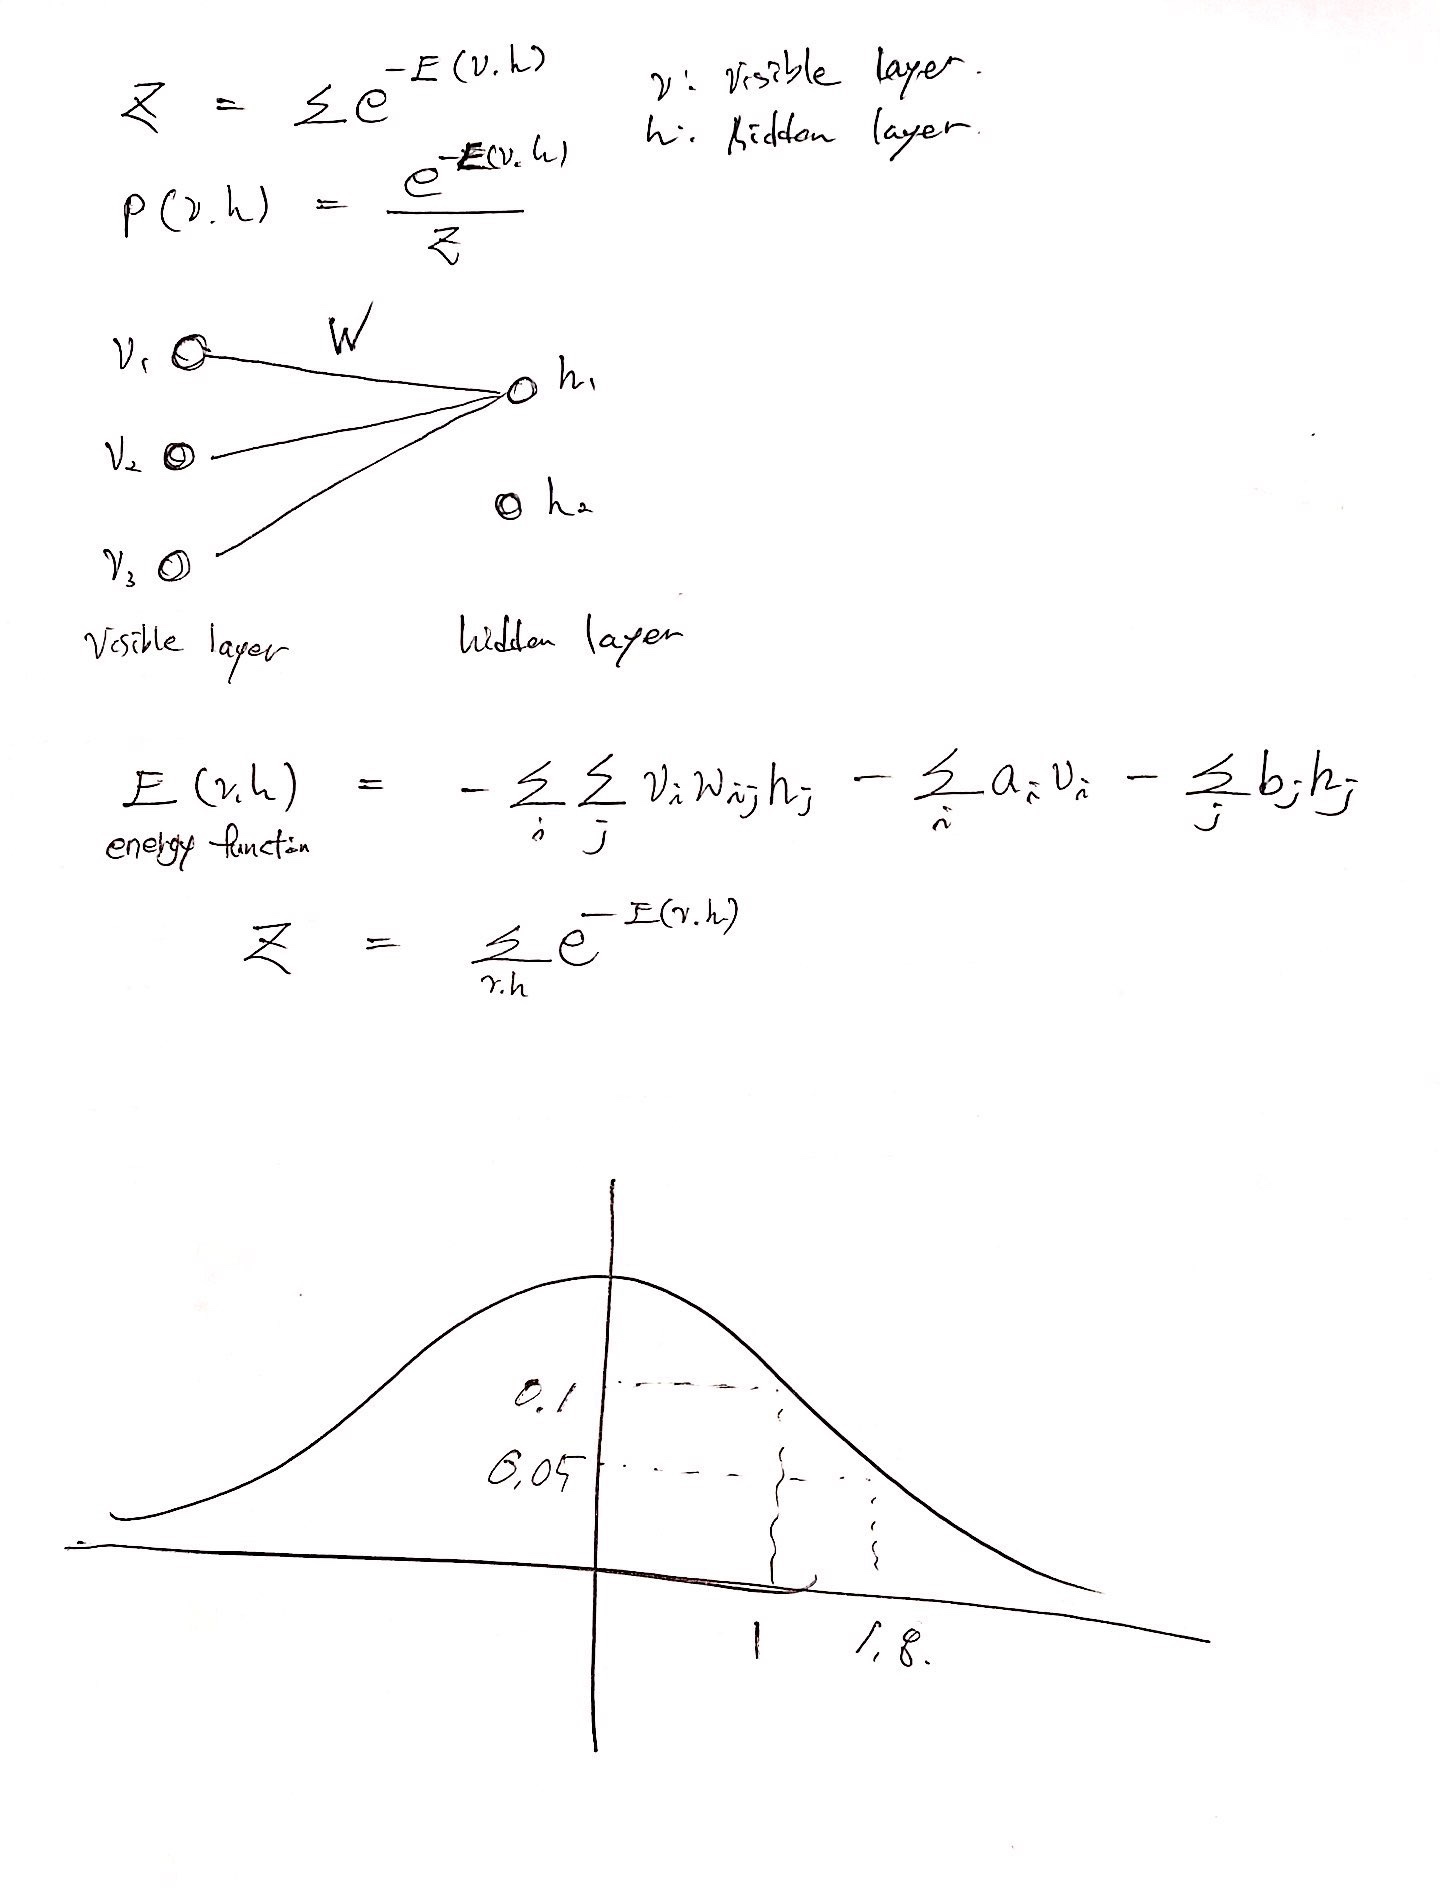 Z = Σ e^{-E(v.h)}
v: visible layer.
h: hidden layer.
P(v.h) = e^{-E(v.h)} / Z
W
v₁
h₁
v₂
h₂
v₃
visible layer
hidden layer
E(v.h) = - Σ_i Σ_j v_i w_ij h_j - Σ_i a_i v_i - Σ_j b_j h_j
energy function
Z = Σ_{v.h} e^{-E(v.h)}
0.1
0.05
1 1.8.